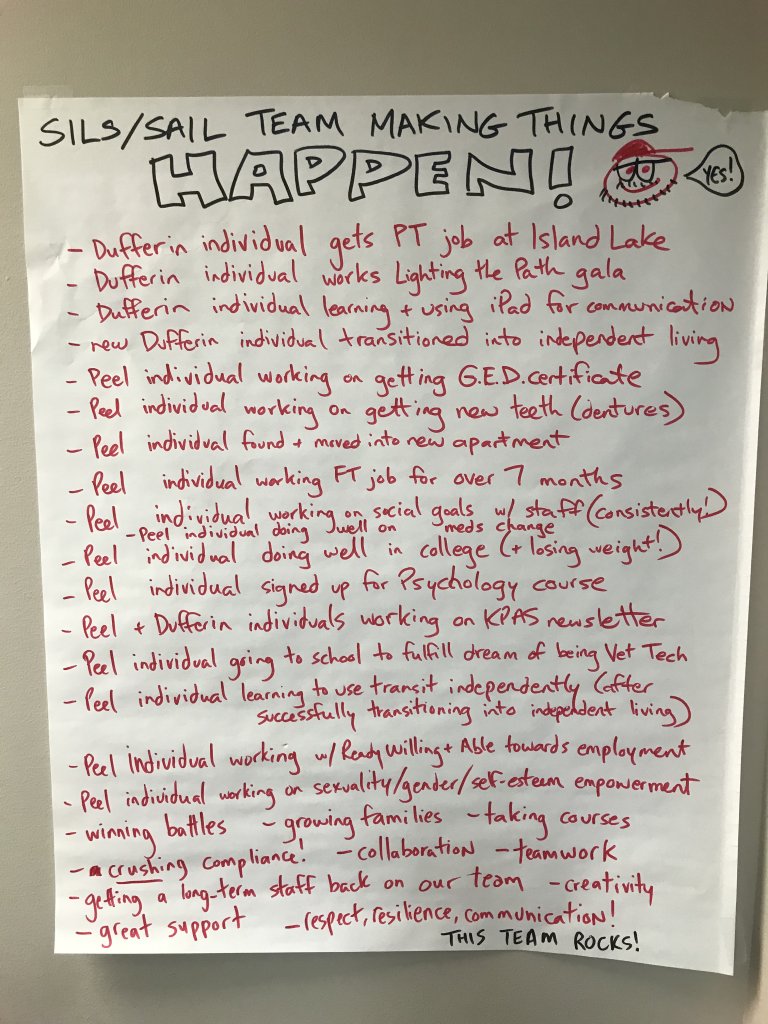 SILS/SAIL TEAM MAKING THINGS
HAPPEN!
YES!
- Dufferin individual gets PT job at Island Lake
- Dufferin individual works Lighting the Path gala
- Dufferin individual learning + using iPad for communication
- new Dufferin individual transitioned into independent living
- Peel individual working on getting G.E.D. certificate
- Peel individual working on getting new teeth (dentures)
- Peel individual found + moved into new apartment
- Peel individual working FT job for over 7 months
- Peel individual working on social goals w/ staff (consistently!)
- Peel individual doing well on meds change
- Peel individual doing well in college (+ losing weight!)
- Peel individual signed up for Psychology course
- Peel + Dufferin individuals working on KPAS newsletter
- Peel individual going to school to fulfill dream of being Vet Tech
- Peel individual learning to use transit independently (after
successfully transitioning into independent living)
- Peel Individual working w/ Ready Willing + Able towards employment
- Peel individual working on sexuality/gender/self-esteem empowerment
- winning battles - growing families - taking courses
- crushing compliance! - collaboration - teamwork
- getting a long-term staff back on our team - creativity
- great support - respect, resilience, communication!
THIS TEAM ROCKS!